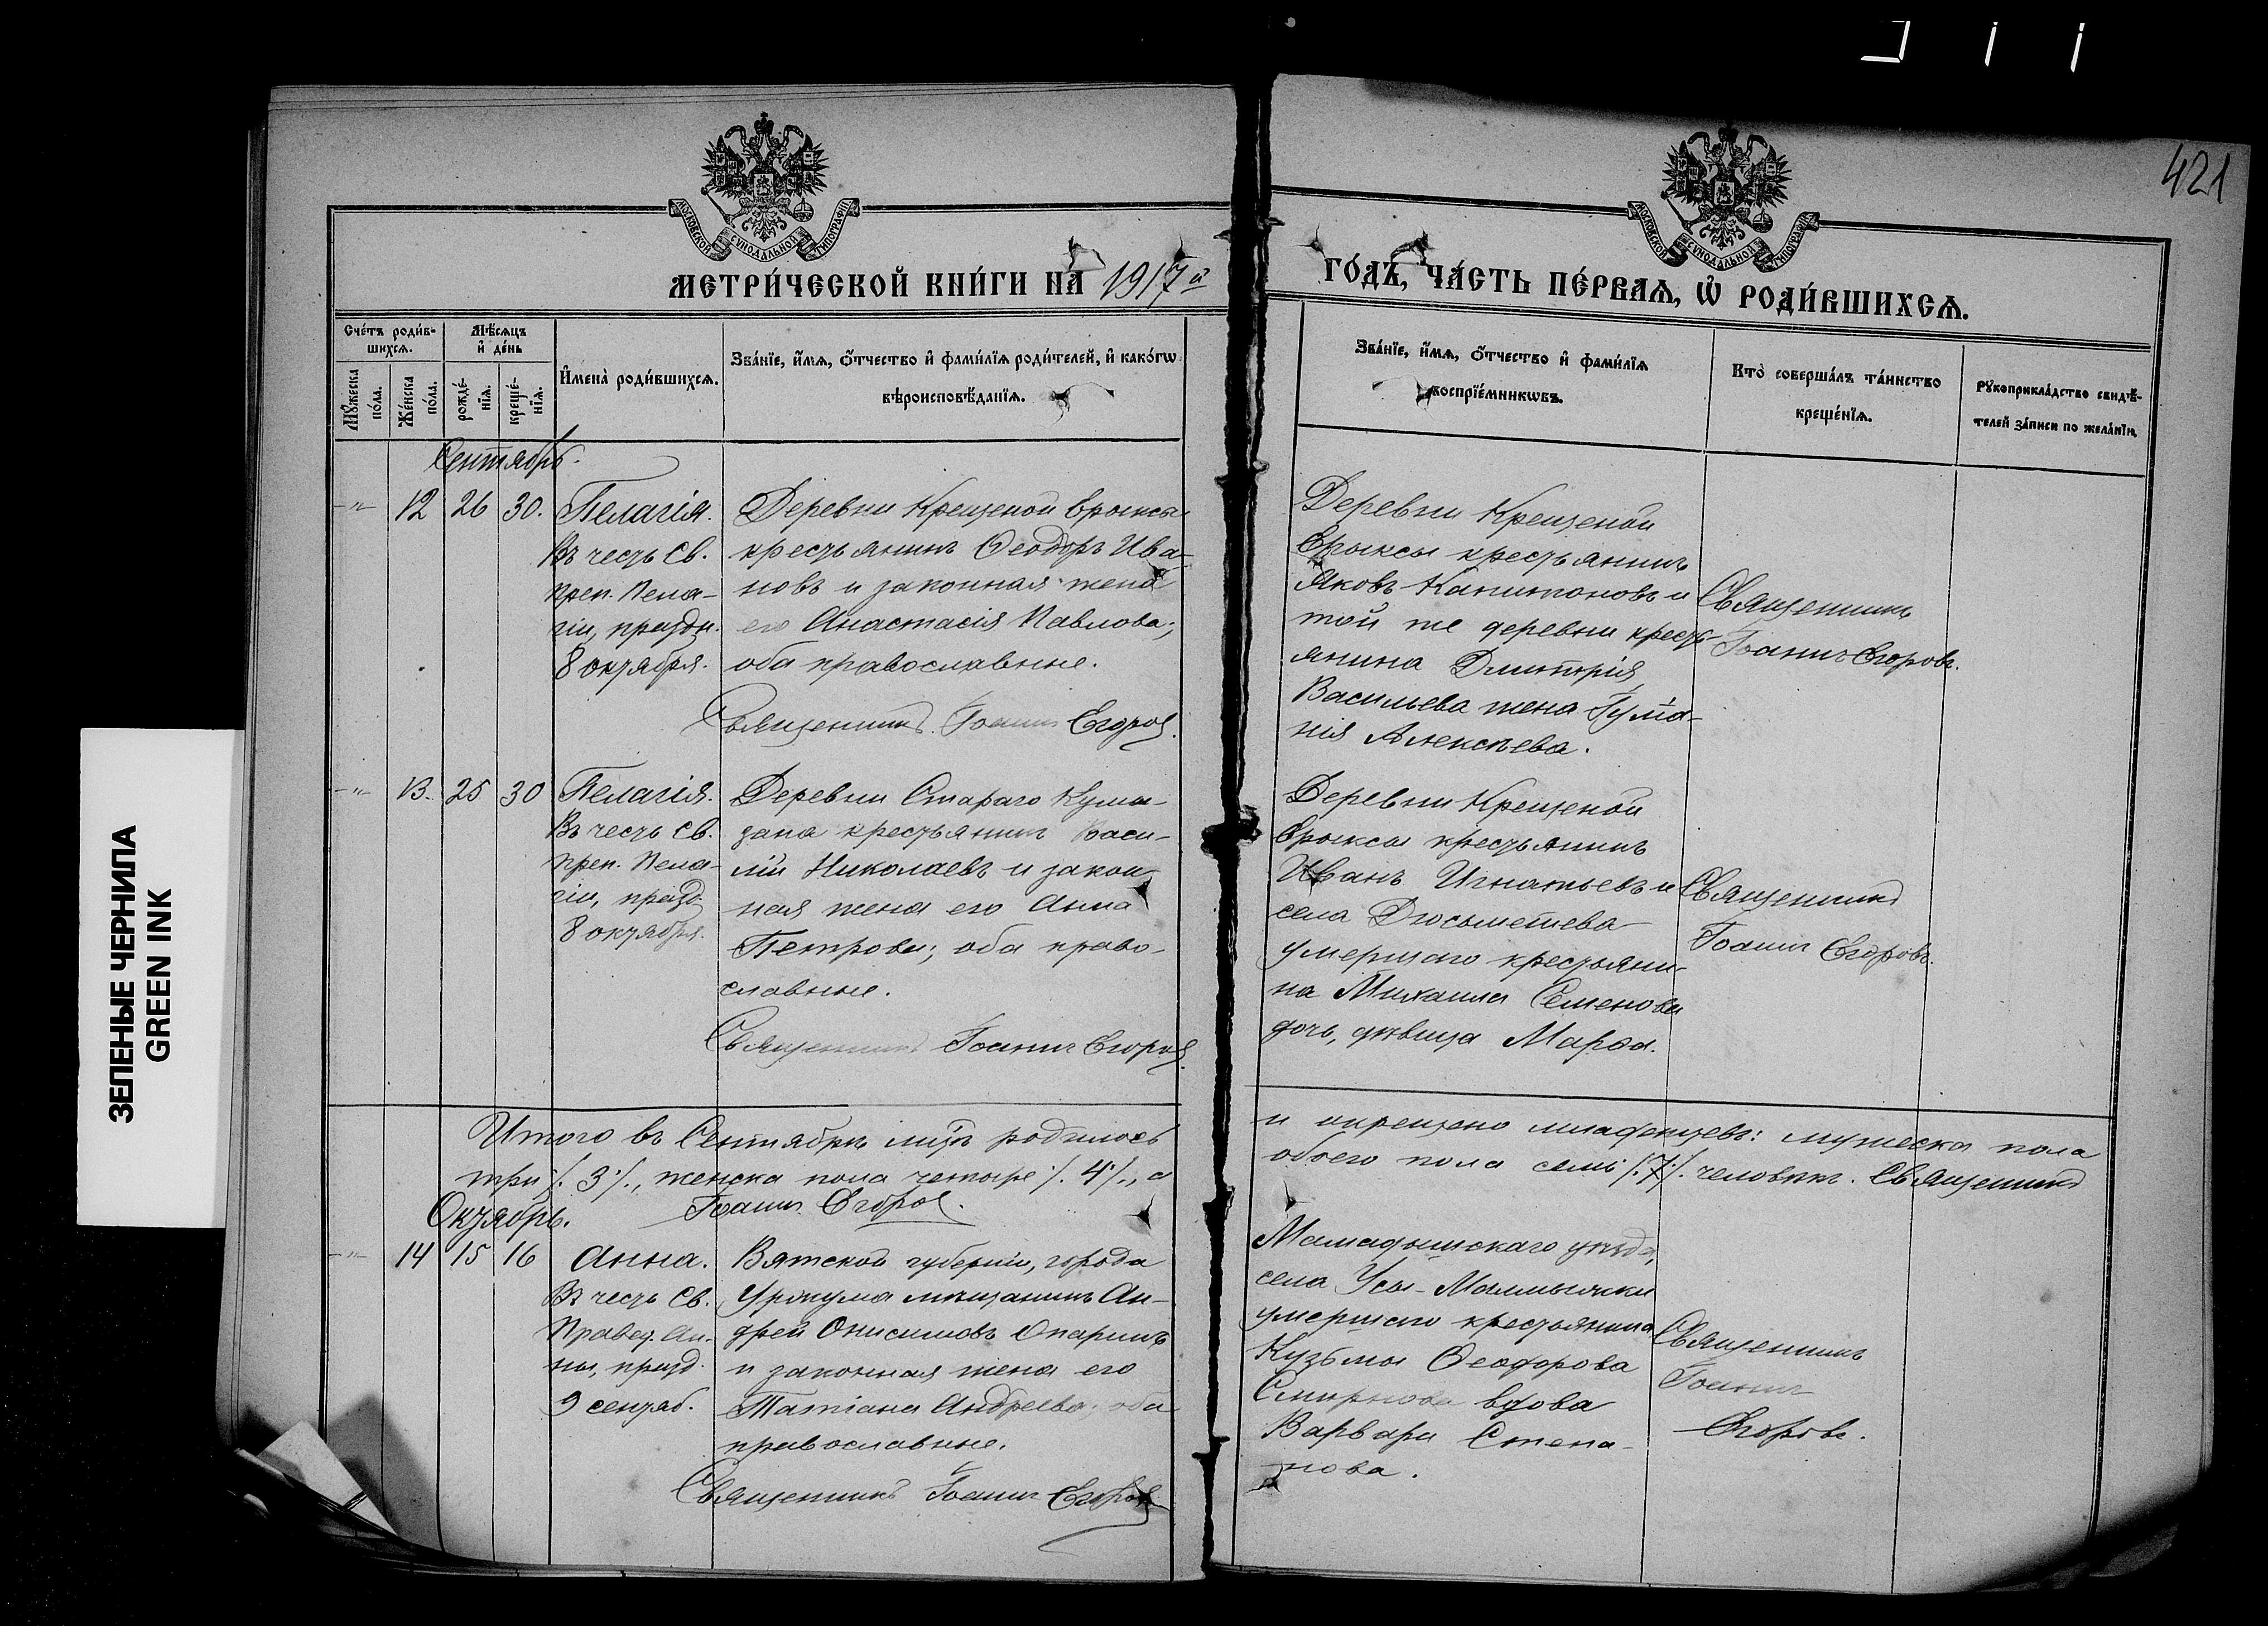 421
МОСКОВСКОЙ СѴНОДАЛЬНОЙ ТИПОГРАФІИ
МОСКОВСКОЙ СѴНОДАЛЬНОЙ ТИПОГРАФІИ
МЕТРИ́ЧЕСКОЙ КНИ́ГИ НА 1917й
ГО́ДЪ, ЧА́СТЬ ПЕ́РВАѦ, Ѡ҆ РОДИ́ВШИХСѦ.
Сче́тъ роди́в-
шихсѧ.
Мѣ́сѧцъ
и҆ де́нь
Мꙋ́жеска
по́ла.
Же́нска
по́ла.
рожде́-
нїѧ.
креще́-
нїѧ.
И҆мена̀ роди́вшихсѧ.
Зва́нїе, и҆́мѧ, ѻ҆́тчество и҆ фами́лїѧ роди́телей, и҆ како́гѡ
вѣроисповѣ́данїѧ.
Зва́нїе, и҆́мѧ, ѻ҆́тчество и҆ фами́лїѧ
воспрїе́мникѡвъ.
Кто̀ соверша́лъ та́инство
креще́нїѧ.
Рꙋкоприкла́дство свидѣ́-
телей за́писи по жела́нїю
Сентябрь.
-"- 12 26 30.
Пелагія.
Въ честь св.
преп. Пела-
гіи, праздн.
8 октября.
Деревни Крещеной Ерыксы
крестьянинъ Ѳеодоръ Ива-
новъ и законная жена
его Анастасія Павлова;
оба православные.
Священникъ Іоаннъ Егоровъ.
Деревни Крещеной
Ерыксы крестьянинъ
Яковъ Капитоновъ и
той же деревни кресть-
янина Дмитрія
Васильева жена
Алексѣева.
Священникъ
Іоаннъ Егоровъ.
-"- 13. 25 30
Пелагія.
Въ честь св.
преп. Пела-
гіи, празд.
8 октября.
Деревни Стараго Кума-
зана крестьянинъ Васи-
лій Николаевъ и закон-
ная жена его Анна
Петрова; оба право-
славные.
Священникъ Іоаннъ Егоровъ.
Деревни Крещеной
Ерыксы крестьянинъ
Иванъ Игнатьевъ и
села Дюсьметева
умершаго крестьяни-
на Михаила Семенова
дочь, дѣвица Марѳа.
Священникъ
Іоаннъ Егоровъ.
Итого въ Сентябрѣ мѣс. родилось и окрещено младенцевъ: мужеска пола
три /. 3 /., женска пола четыре /. 4 /., а обоего пола семь /. 7 /. человѣкъ. Священникъ
Іоаннъ Егоровъ.
Октябрь.
-"- 14 15 16
Анна.
Въ честь св.
Правед. Ан-
ны, празд.
9 сентяб.
Вятской губерніи, города
Уржума мѣщанинъ Ан-
дрей Онисимовъ Опаринъ
и законная жена его
Татіана Андреева; оба
православные.
Священникъ Іоаннъ Егоровъ
Мамадышскаго уѣзда,
села Усы-Маммычки
умершаго крестьянина
Кузьмы Ѳеодорова
Смирнова вдова
Варвара Степа-
нова.
Священникъ
Іоаннъ
Егоровъ.
ЗЕЛЕНЫЕ ЧЕРНИЛА
GREEN INK